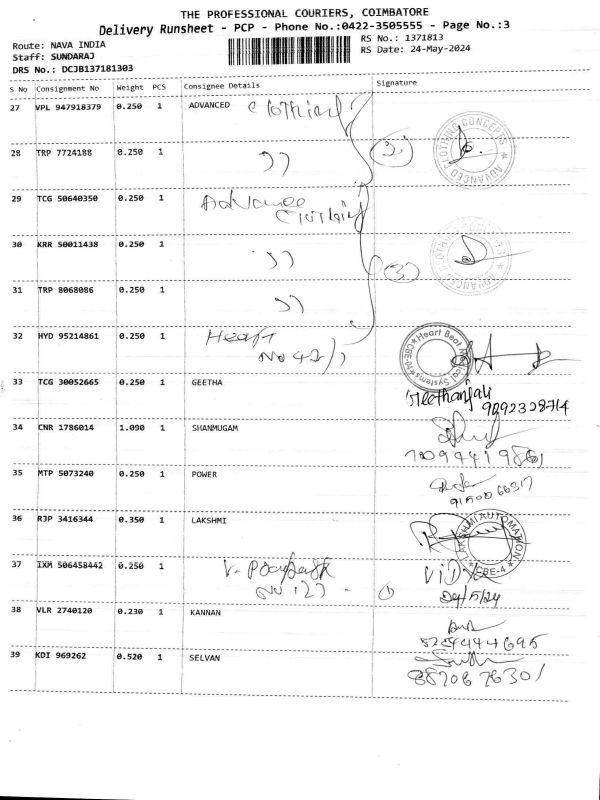 THE PROFESSIONAL COURIERS, COIMBATORE
Delivery Runsheet - PCP - Phone No.:0422-3505555 - Page No.:3
Route: NAVA INDIA
RS No.: 1371813
Staff: SUNDARAJ
RS Date: 24-May-2024
DRS No.: DCJB137181303
S No Consignment No Weight PCS Consignee Details Signature
27 VPL 947918379 0.250 1 ADVANCED Clothing
28 TRP 7724188 0.250 1 )) (2)
ADVANCED CLOTHING CONCEPTS
29 TCG 50640350 0.250 1 Advance
Clothing
30 KRR 50011438 0.250 1 )) (3)
31 TRP 8068086 0.250 1 ))
32 HYD 95214861 0.250 1 Heart
No 42/1
Heart Beat Medical Systems CBE-04
33 TCG 30052665 0.250 1 GEETHA Geethanjali
9092328714
34 CNR 1786014 1.090 1 SHANMUGAM
70994419861
35 MTP 5073240 0.250 1 POWER
9150066317
36 RJP 3416344 0.350 1 LAKSHMI
LAKSHMI AUTOMATION CBE-4
37 IXM 506458442 0.250 1 V-
No 127 - (1)
24/5/24
38 VLR 2740120 0.230 1 KANNAN
39 KDI 969262 0.520 1 SELVAN